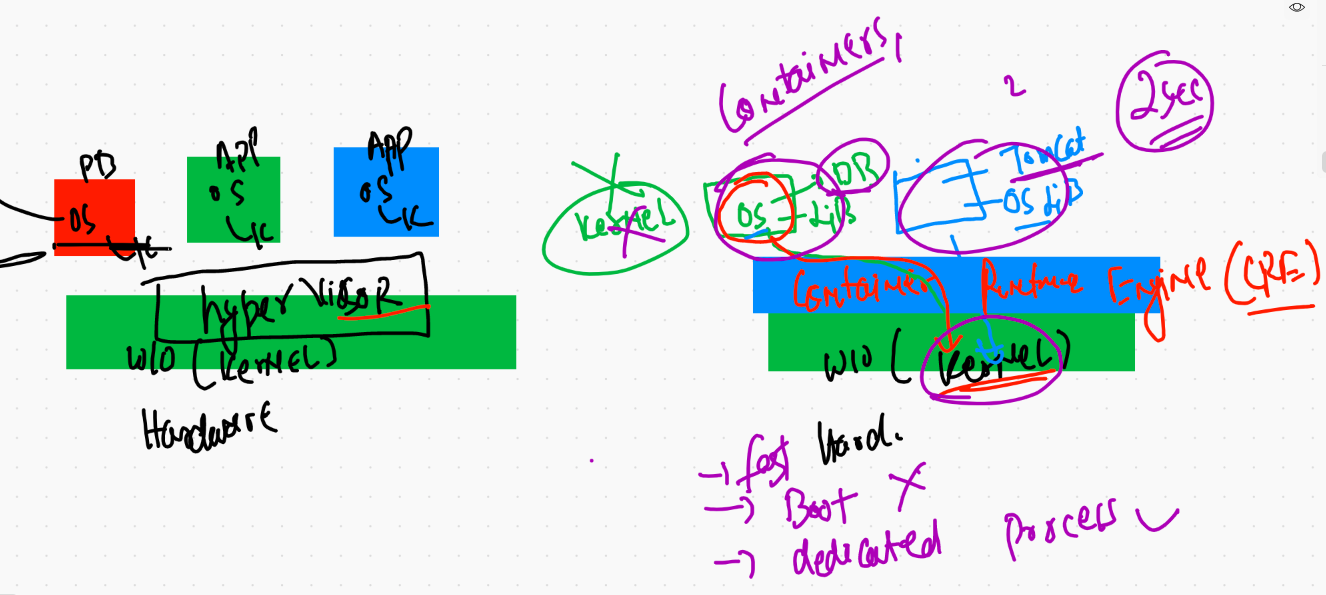 DB
OS
K
APP
OS
K
APP
OS
K
hyper VisoR
W/O (KerNEL)
Hardware
Containers,
2
2 sec
KerNEL
OS
DB
LiB
Tomcat
OS LiB
Container Runtime Engine (CRE)
W/O (KerNEL)
Hard.
→ fast
→ Boot X
→ dedicated Process ✓